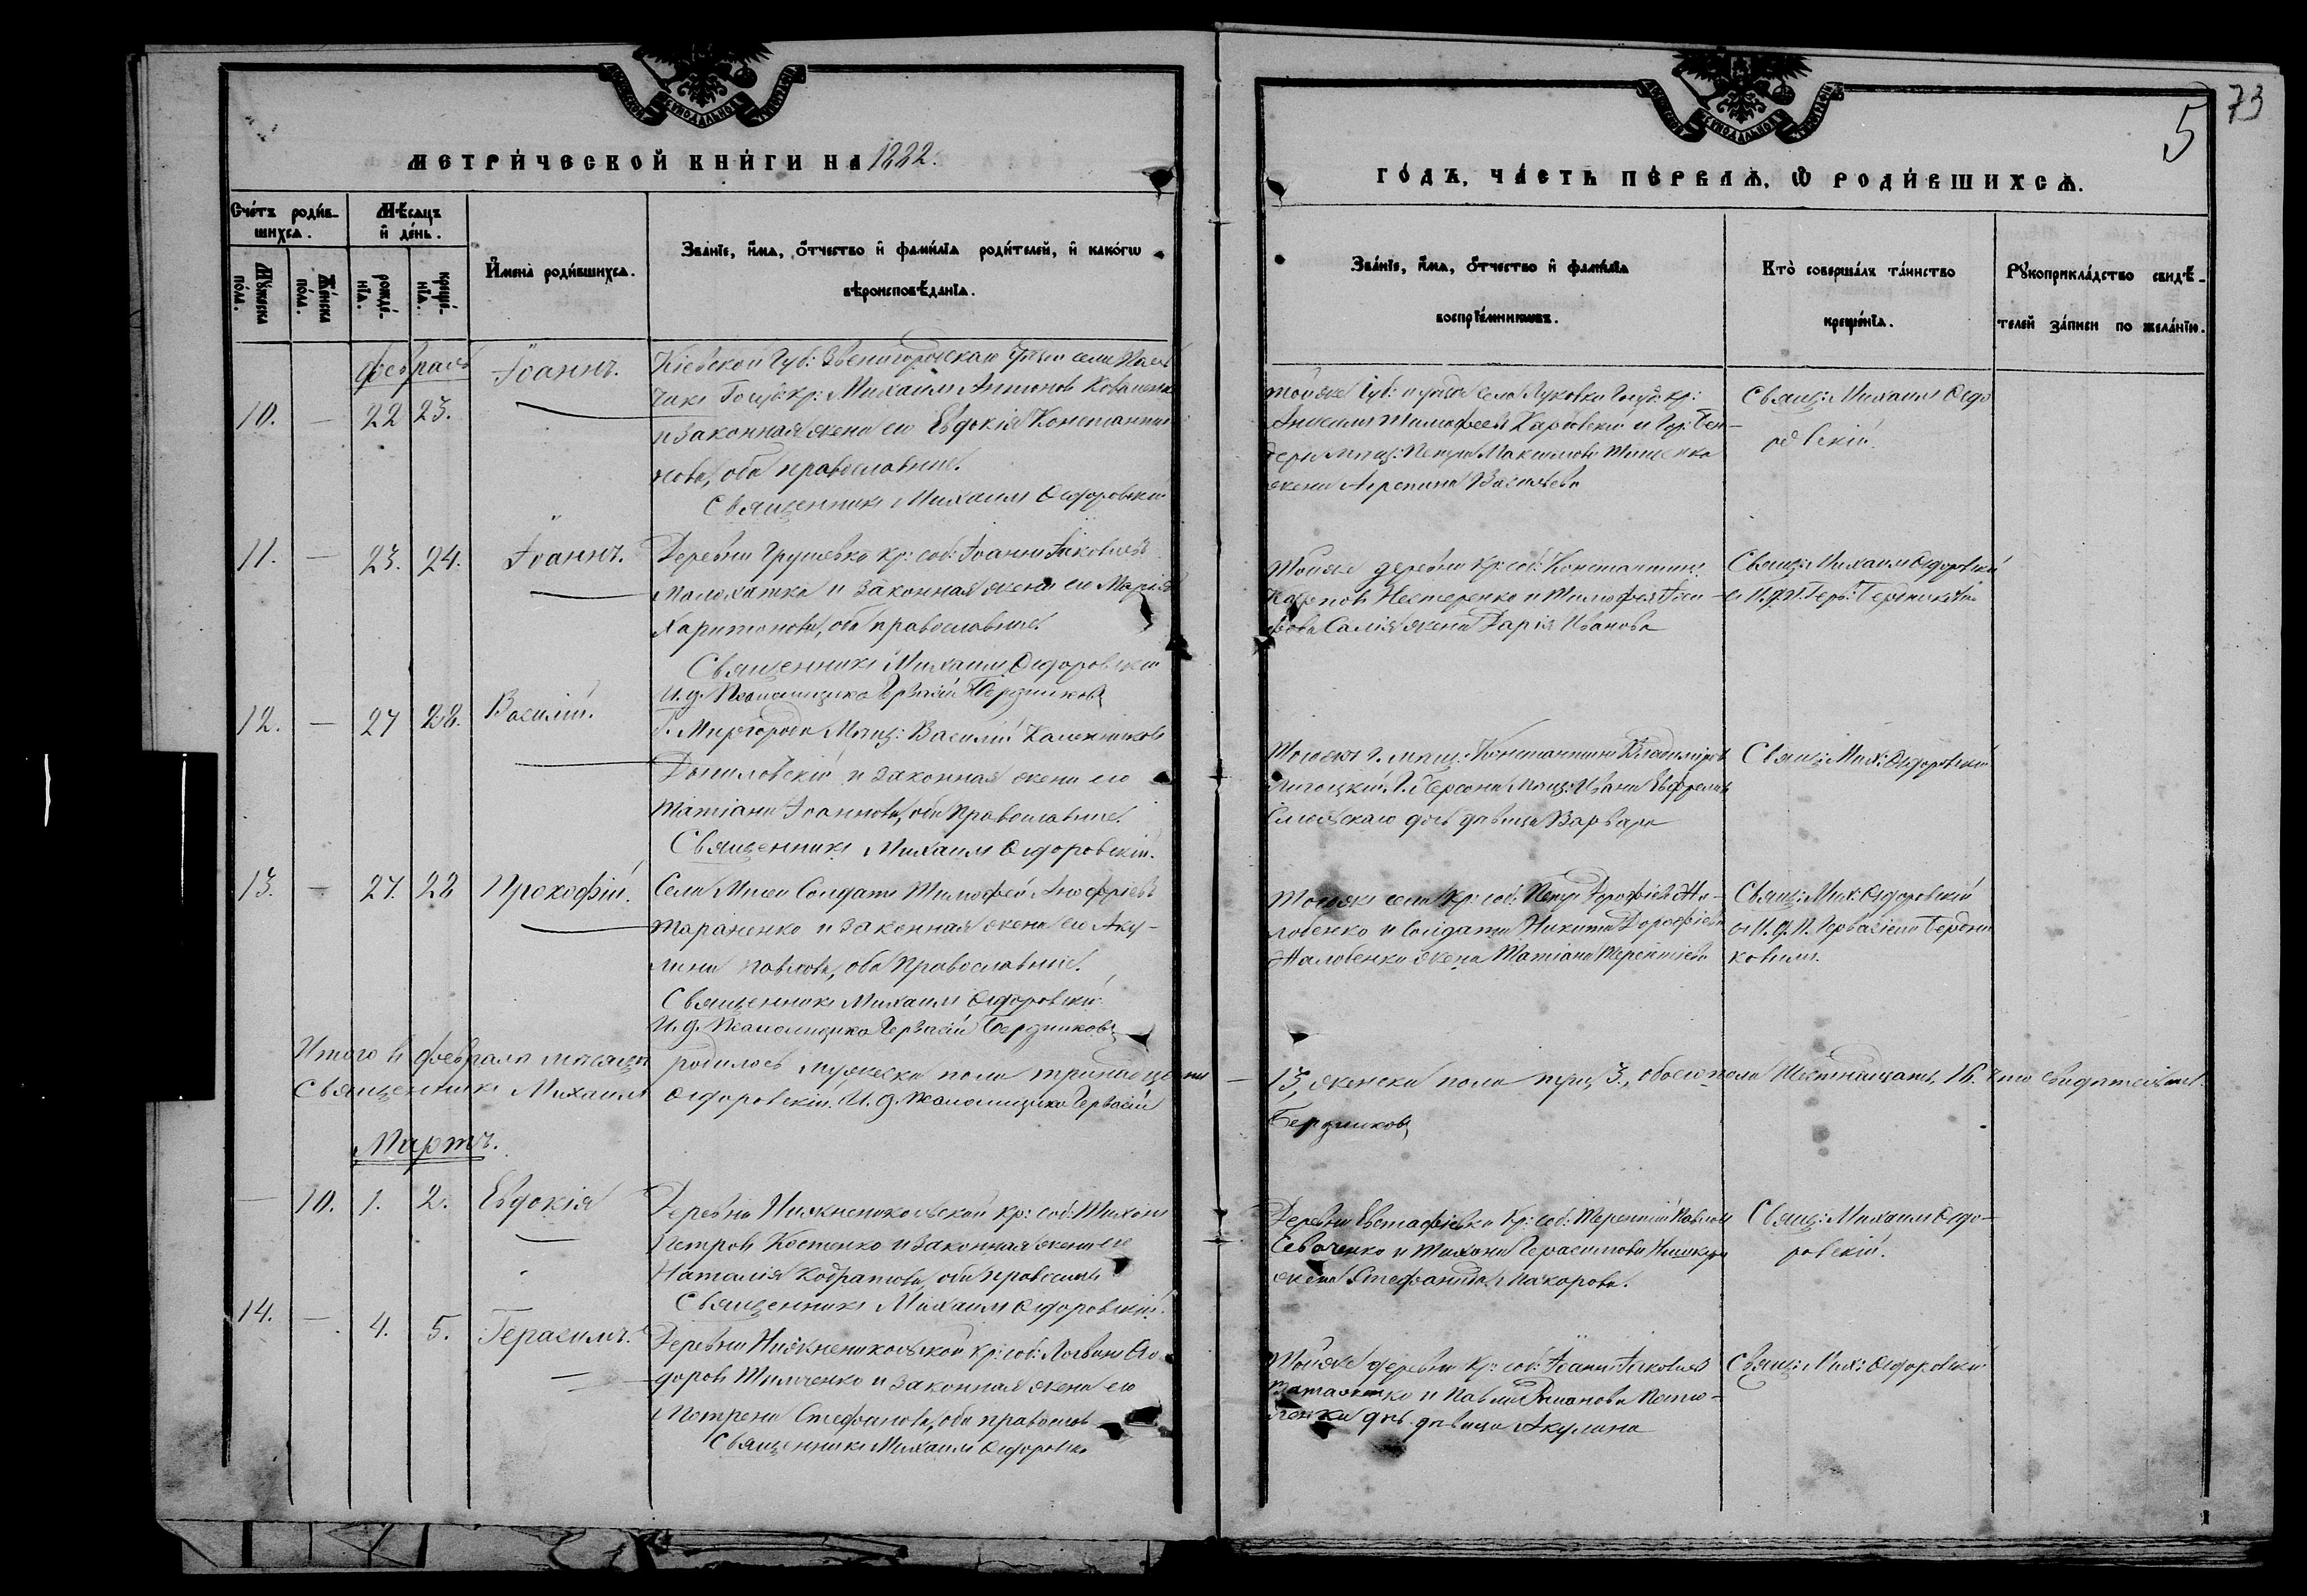 73
5
МЕТРИ́ЧЕСКОЙ КНИ́ГИ НА 1882.
ГО́ДЪ, ЧА́СТЬ ПЕ́РВАѦ, Ѡ РОДИ́ВШИХСѦ.
Сче́тъ роди́в-
шихсѧ.
Мѣ́сѧцъ
и҆ де́нь.
И҆мена̀ роди́вшихсѧ.
Зва́нїе, и҆́мѧ, ѻ҆́тчество и҆ фами́лїѧ роди́телей, и҆ како́гѡ
вѣроисповѣ́данїѧ.
Мꙋ́жеска
по́ла.
Же́нска
по́ла.
рожде́-
нїѧ.
креще́-
нїѧ.
Зва́нїе, и҆́мѧ, ѻ҆́тчество и҆ фами́лїѧ
воспрїе́мникѡвъ.
Кто̀ соверша́лъ та́инство
креще́нїѧ.
Рꙋкоприкла́дство свидѣ́-
телей за́писи по жела́нїю.
Февраль
10. — 22 23. Іоаннъ.
Кіевской Губ: Звенигородскаго
Госуд: кр: Михаилъ Антоновъ
и законная жена его Евдокія Константи
нова, оба православные.
Священникъ Михаилъ Ѳедоровскій
Тойже Губ: и уезда села Луковки Госуд: кр:
Тимофеевъ и Гор: Бен-
деръ мещ: Петра Максимова Тищенка
жена Агрепина Васильева
Свящ: Михаилъ Ѳедо
ровскій.
11. — 23. 24. Іоаннъ.
Деревни Грушевка кр: соб: Іоаннъ Яковлевъ
Малохатка и законная жена его Марія
Харитонова, оба православные.
Священникъ Михаилъ Ѳедоровскій
И. д. Псаломщика Гервасій Бердниковъ
Тойже деревни кр: соб: Константинъ
Нестеренко и Тимофея
жена Дарія Иванова
Свящ: Михаилъ Ѳедоровскій
12. — 27 28. Василій.
Г. Миргорода Мещ: Василій
и законная жена его
Татіана Іоаннова, оба Православные.
Священникъ Михаилъ Ѳедоровскій.
мещ: Константинъ Владиміровъ
Г. Херсона мещ: Ивана
дочь девица Варвара
Свящ: Мих: Ѳедоровскій
13. — 27. 28 Прокофій.
Села Солдатъ Тимофей
Тараненко и законная жена его Аку-
лина Павлова, оба Православные.
Священникъ Михаилъ Ѳедоровскій
И. д. Псаломщика Гервасій Бердниковъ
села кр: соб: Петръ Дорофіевъ Жа-
ловенко и Солдата Никиты Дорофіева
Жаловенка жена Татіана Терентіева
Свящ: Мих: Ѳедоровскій
съ И. д. П. Гервасіемъ Бердни
ковымъ.
Итого в феврале месяце родилось мужеска пола тринадцать — 13, женска пола три, 3., обоего пола Шестнадцать, 16. Что свидетельст.
Священникъ Михаилъ Ѳедоровскій. И. д. Псаломщика Гервасій
Бердниковъ
Мартъ.
— 10. 1. 2. Евдокія
Деревни Нижненикольской кр: соб: Тихонъ
Петровъ Костенко и законная жена его
Наталія Кодратова, оба православ
Священникъ Михаилъ Ѳедоровскій.
Деревни Евстафіевки кр: соб: Терентій Павловъ
и Тихона Герасимова
жена Стефанида Макарова.
Свящ: Михаилъ Ѳедо-
ровскій.
14. — 4. 5. Герасимъ.
Деревни Нижненикольской кр: соб: Логвинъ Ѳео
доровъ Тимченко и законная жена его
Мотрена Стефанова, оба православ
Священникъ Михаилъ Ѳедоровскі
Тойже деревни кр: соб: Іоаннъ Яковлевъ
и Павла
дочь девица Акулина
Свящ: Мих: Ѳедоровскій